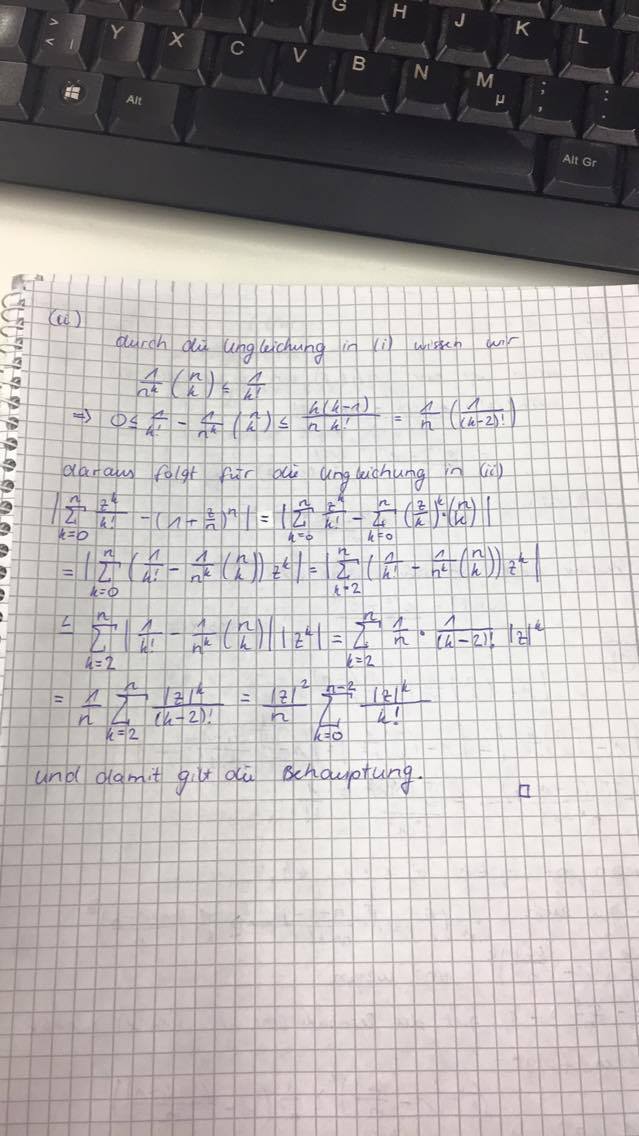 G H J K L
> < | Y X C V B N M µ ; , : .
Alt Alt Gr
(ii)
durch die Ungleichung in (i) wissen wir
1/n^k (n k) ≤ 1/k!
⇒ 0 ≤ 1/k! - 1/n^k (n k) ≤ k(k-1)/(n k!) = 1/n (1/(k-2)!)
daraus folgt für die Ungleichung in (ii)
|∑_{k=0}^{n} z^k/k! - (1 + z/n)^n| = |∑_{k=0}^{n} z^k/k! - ∑_{k=0}^{n} (z/k)^k · (n k)|
= |∑_{k=0}^{n} (1/k! - 1/n^k (n k)) z^k| = |∑_{k=2}^{n} (1/k! - 1/n^k (n k)) z^k|
≤ ∑_{k=2}^{n} |1/k! - 1/n^k (n k)| |z^k| = ∑_{k=2}^{n} 1/n · 1/(k-2)! |z|^k
= 1/n ∑_{k=2}^{n} |z|^k/(k-2)! = |z|^2/n ∑_{k=0}^{n-2} |z|^k/k!
und damit gilt die Behauptung. □